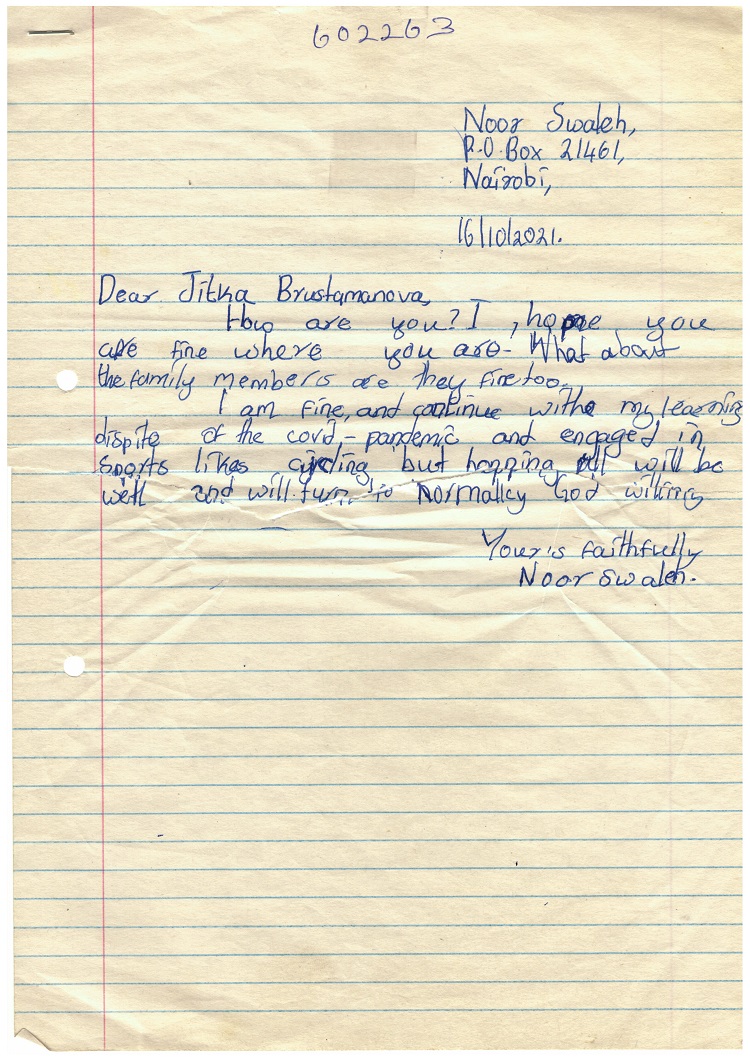 602263
Noor Swaleh,
P.O. Box 21461,
Nairobi,
16/10/2021.
Dear Jitka Brustamanova,
How are you? I, hope you
are fine where you are. What about
the family members are they fine too.
I am fine, and continue withe my learning
dispite of the covid,- pandemic and engaged in
sports likes cycling but hopping all will be
well and will turn to Normalcy God willing
Your's faithfully
Noor Swaleh.